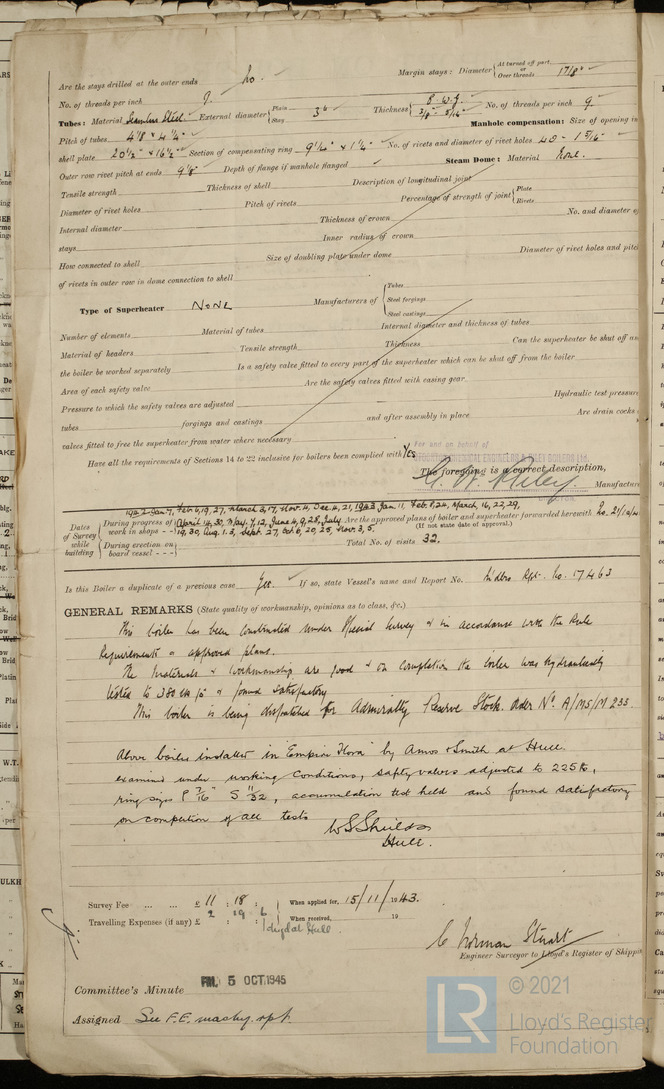 Are the stays drilled at the outer ends No. Margin stays: Diameter { At turned off part or Over threads 1 7/8"
No. of threads per inch 9.
Tubes: Material Seamless Steel. External diameter { Plain Stay 3" Thickness { 8 W.G. 3/8" - 5/16" No. of threads per inch 9.
Pitch of tubes 4 1/8 x 4 1/4" Manhole compensation: Size of opening in
shell plate 20 1/2" x 16 1/2" Section of compensating ring 9 1/4" x 1 1/4" No. of rivets and diameter of rivet holes 40 - 1 5/16"
Outer row rivet pitch at ends 9 1/8" Depth of flange if manhole flanged Steam Dome: Material None.
Tensile strength Thickness of shell Description of longitudinal joint
Diameter of rivet holes Pitch of rivets Percentage of strength of joint { Plate Rivets
Internal diameter Thickness of crown No. and diameter of
stays Inner radius of crown
How connected to shell Size of doubling plate under dome Diameter of rivet holes and pitch
of rivets in outer row in dome connection to shell
Type of Superheater NONE Manufacturers of { Tubes Steel forgings Steel castings
Number of elements Material of tubes Internal diameter and thickness of tubes
Material of headers Tensile strength Thickness Can the superheater be shut off and
the boiler be worked separately Is a safety valve fitted to every part of the superheater which can be shut off from the boiler
Area of each safety valve Are the safety valves fitted with easing gear
Pressure to which the safety valves are adjusted Hydraulic test pressure
tubes forgings and castings and after assembly in place Are drain cocks
valves fitted to free the superheater from water where necessary
Have all the requirements of Sections 14 to 22 inclusive for boilers been complied with Yes
For and on behalf of
The foregoing is a correct description,
Manufacturer
Dates of Survey while building { During progress of work in shops - - 1942 Jan 7, Feb 6, 19, 27, March 3, 17, Nov. 4, Dec. 4, 21, 1943 Jan. 11, Feb 8, 24, March, 16, 22, 29,
April 14, 30, May 7, 12, June 4, 9, 28, July
19, 30, Aug. 1. 3, Sept. 27, Oct 6, 20, 25, Nov. 3, 5.
Are the approved plans of boiler and superheater forwarded herewith No.
(If not state date of approval.)
During erection on board vessel - - - Total No. of visits 32.
Is this Boiler a duplicate of a previous case Yes. If so, state Vessel's name and Report No. Mdbro. Rpt. No. 17463
GENERAL REMARKS (State quality of workmanship, opinions as to class, &c.)
This boiler has been constructed under Special Survey & in accordance with the Rule
Requirements & approved plans.
The materials & workmanship are good & on completion the boiler was hydraulically
tested to 380 lb/□" & found satisfactory
This boiler is being dispatched for Admiralty Reserve Stock. Order No. A/MS/M 233.
Above boiler installed in "Empire Flora" by Amos & Smith at Hull.
examined under working conditions, safety valves adjusted to 225 lb,
ring sizes P 7/16" S 11/32, accumulation test held and found satisfactory
on completion of all tests
W S Shields
Hull.
Survey Fee ... ... £ 11 : 18 : When applied for, 15/11/1943.
Travelling Expenses (if any) £ 2 : 19 : 6 When received, 19
1 dug'd at Hull.
C Norman Stuart
Engineer Surveyor to Lloyd's Register of Shipping
Committee's Minute FRI. 5 OCT 1945
Assigned See F.E. machy. rpt.
© 2021
LR
Lloyd's Register
Foundation